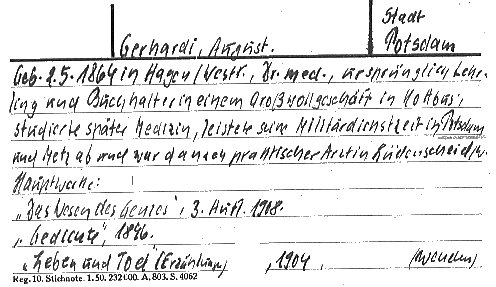 Stadt
Gerhardi, August. Potsdam
Geb. 2.5. 1864 in Hagen/Westf., Dr. med., ursprünglich Lehr-
ling und Buchhalter in einem Großwollgeschäft in Kottbus,
studierte später Medizin, leistete seine Militärdienstzeit in Potsdam
und Metz ab und war dann praktischer Arzt in Lüdenscheid/W.
Hauptwerke:
„Das Wesen des Genies", 3. Aufl. 1908.
„Gedichte", 1896.
„Leben und Tod" (Erzählung) , 1904 (Wenden)
Reg. 10. Stichnote. 1. 50. 232000. A. 803. S. 4062